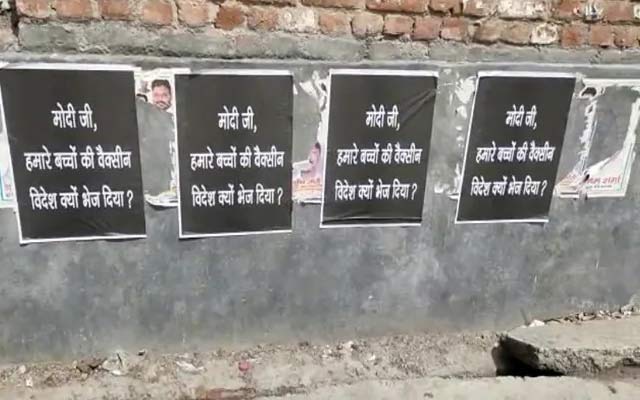 मोदी जी,
हमारे बच्चों की वैक्सीन
विदेश क्यों भेज दिया ?
मोदी जी,
हमारे बच्चों की वैक्सीन
विदेश क्यों भेज दिया ?
मोदी जी,
हमारे बच्चों की वैक्सीन
विदेश क्यों भेज दिया ?
मोदी जी,
हमारे बच्चों की वैक्सीन
विदेश क्यों भेज दिया ?
शर्मा